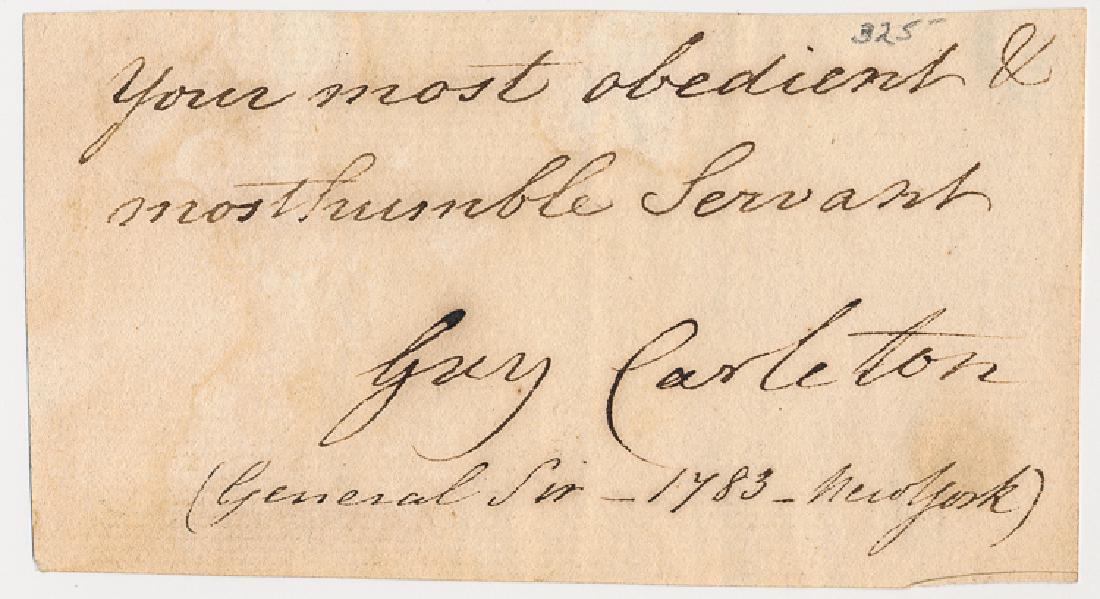 325
Your most obedient &
most humble Servant
Guy Carleton
(General Sir – 1783 – New York)